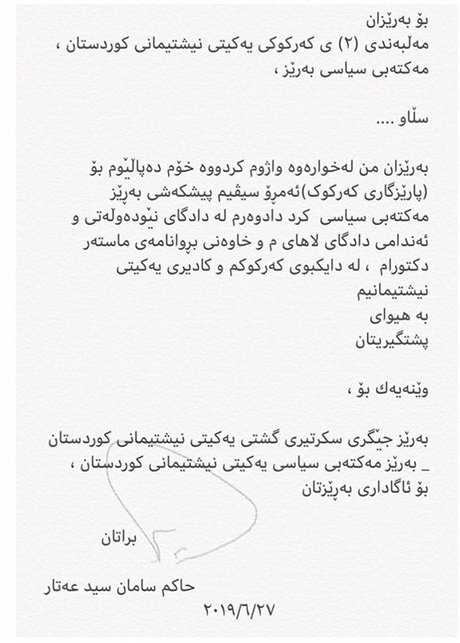 بۆ بەرێزان
مەڵبەندی (٢) ی کەرکوکی یەکیتی نیشتیمانی کوردستان ،
مەکتەبی سیاسی بەرێز ،
سڵاو ....
بەرێزان من لەخوارەوە واژوم کردووە خۆم دەپاڵێوم بۆ
(پارێزگاری کەرکوک)ئەمڕۆ سیڤیم پیشکەشی بەڕێز
مەکتەبی سیاسی کرد دادوەرم لە دادگای نێودەوڵەتی و
ئەندامی دادگای لاهای م و خاوەنی بڕوانامەی ماستەر
دکتورام ، لە دایکبوی کەرکوکم و کادیری یەکیتی
نیشتیمانیم
بە هیوای
پشتگیریتان
وێنەیەك بۆ ،
بەرێز جێگری سکرتیری گشتی یەکیتی نیشتیمانی کوردستان
_ بەرێز مەکتەبی سیاسی یەکیتی نیشتیمانی کوردستان ،
بۆ ئاگاداری بەڕێزتان
براتان
حاکم سامان سید عەتار
٢٠١٩/٦/٢٧